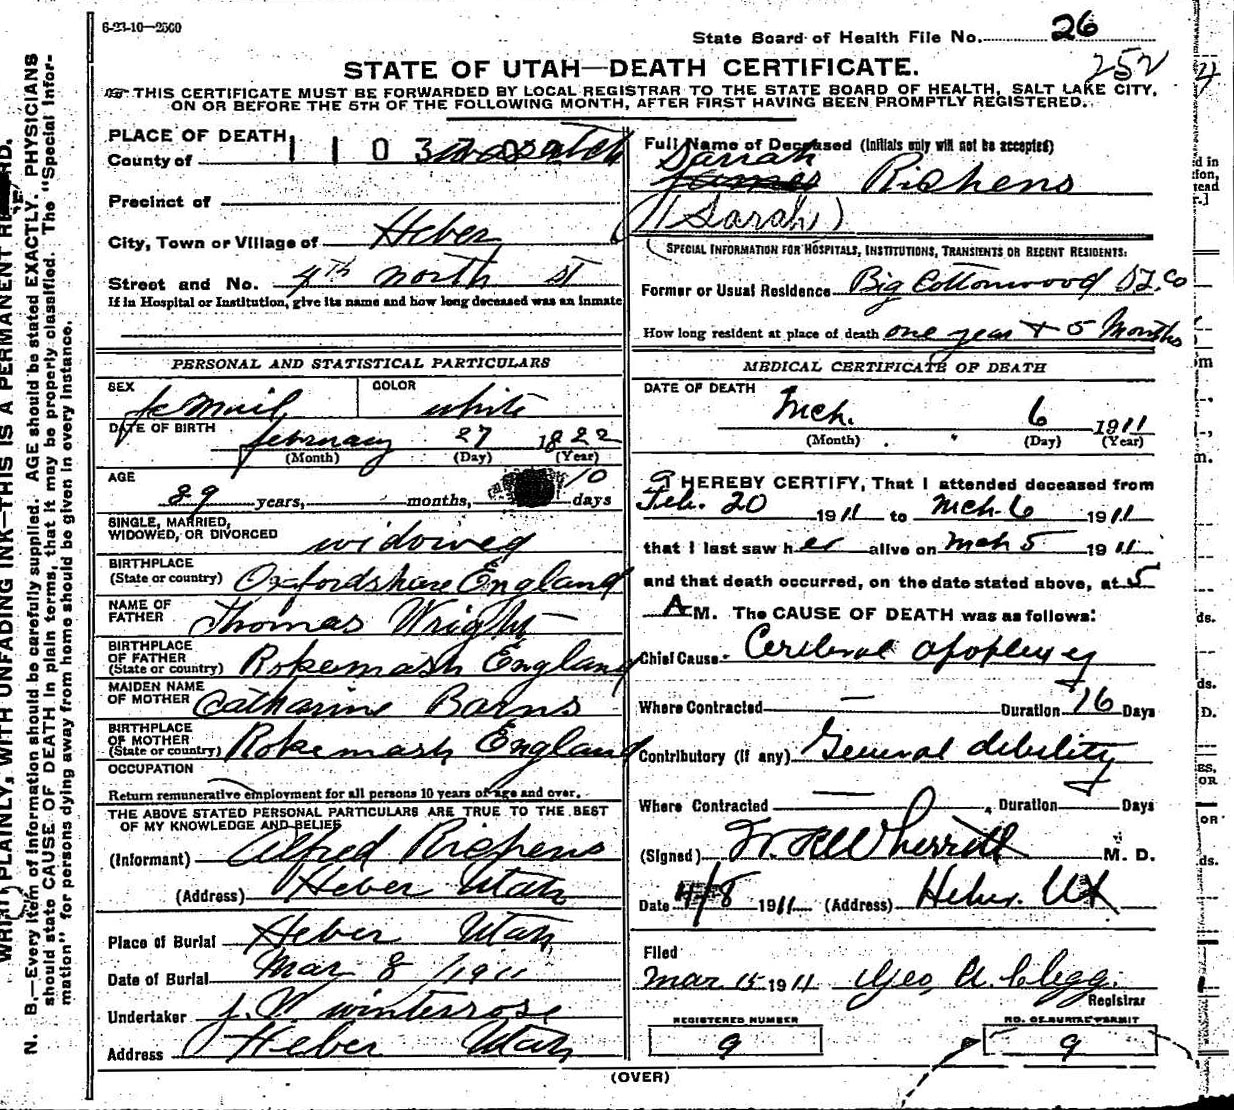 6-23-10—2500
State Board of Health File No. 26
252
STATE OF UTAH—DEATH CERTIFICATE.
THIS CERTIFICATE MUST BE FORWARDED BY LOCAL REGISTRAR TO THE STATE BOARD OF HEALTH, SALT LAKE CITY,
ON OR BEFORE THE 5TH OF THE FOLLOWING MONTH, AFTER FIRST HAVING BEEN PROMPTLY REGISTERED.
PLACE OF DEATH
County of 1 1 0 3 Wasatch
Precinct of
City, Town or Village of Heber
Street and No. 4th north st
If in Hospital or Institution, give its name and how long deceased was an inmate
Full Name of Deceased (Initials only will not be accepted)
Sarah
James Richens
(Sarah)
SPECIAL INFORMATION FOR HOSPITALS, INSTITUTIONS, TRANSIENTS OR RECENT RESIDENTS:
Former or Usual Residence Big Cottonwood S.L. Co
How long resident at place of death one year + 5 Months
PERSONAL AND STATISTICAL PARTICULARS
SEX feMail
COLOR white
DATE OF BIRTH february 27 1822
(Month) (Day) (Year)
AGE
89 years, months, 10 days
SINGLE, MARRIED,
WIDOWED, OR DIVORCED widowed
BIRTHPLACE
(State or country) Oxfordshire England
NAME OF
FATHER Thomas Wright
BIRTHPLACE
OF FATHER
(State or country) Rokemash England
MAIDEN NAME
OF MOTHER Catharine Barns
BIRTHPLACE
OF MOTHER
(State or country) Rokemash England
OCCUPATION
Return remunerative employment for all persons 10 years of age and over.
THE ABOVE STATED PERSONAL PARTICULARS ARE TRUE TO THE BEST
OF MY KNOWLEDGE AND BELIEF
(Informant) Alfred Richens
(Address) Heber Utah
Place of Burial Heber Utah
Date of Burial Mar 8 1911
Undertaker J. W. winterrose
Address Heber Utah
MEDICAL CERTIFICATE OF DEATH
DATE OF DEATH
Mch. 6 1911
(Month) (Day) (Year)
I HEREBY CERTIFY, That I attended deceased from
Feb. 20 1911 to Mch. 6 1911
that I last saw her alive on Mch 5 1911
and that death occurred, on the date stated above, at 5
A M. The CAUSE OF DEATH was as follows:
Chief Cause Cerebral apoplexy
Where Contracted — Duration 16 Days
Contributory (if any) General debility
Where Contracted — Duration Days
(Signed) Wherritt M. D.
Date 4/8 1911 (Address) Heber. Ut
Filed
Mar 15 1911 Geo. A. Clegg.
Registrar
REGISTERED NUMBER
9
NO. OF BURIAL PERMIT
9
(OVER)
WRITE PLAINLY, WITH UNFADING INK—THIS IS A PERMANENT RECORD.
N. B.—Every item of information should be carefully supplied. AGE should be stated EXACTLY. PHYSICIANS
should state CAUSE OF DEATH in plain terms, that it may be properly classified. The "Special Infor-
mation" for persons dying away from home should be given in every instance.